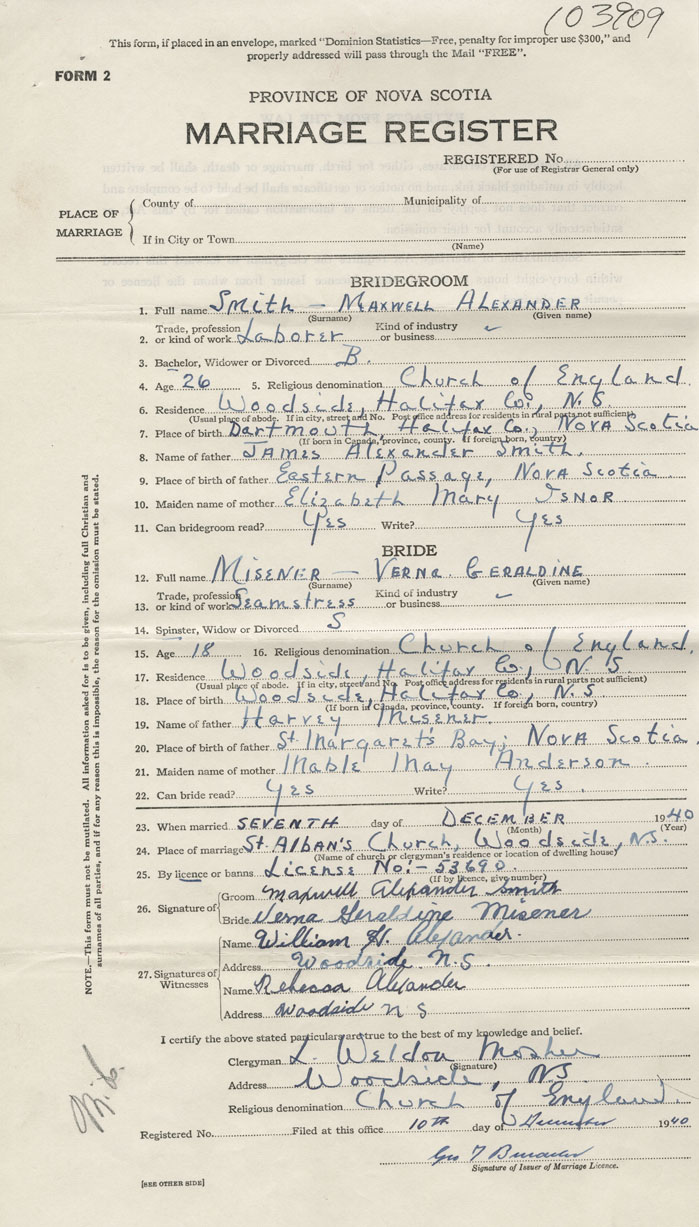 103909
This form, if placed in an envelope, marked "Dominion Statistics—Free, penalty for improper use $300," and
properly addressed will pass through the Mail "FREE".
FORM 2
PROVINCE OF NOVA SCOTIA
MARRIAGE REGISTER
REGISTERED No.
(For use of Registrar General only)
PLACE OF MARRIAGE
County of Municipality of
If in City or Town
(Name)
BRIDEGROOM
1. Full name Smith — Maxwell Alexander
(Surname) (Given name)
2. Trade, profession or kind of work Laborer Kind of industry or business
3. Bachelor, Widower or Divorced B.
4. Age 26 5. Religious denomination Church of England.
6. Residence Woodside, Halifax Co., N.S
(Usual place of abode. If in city, street and No. Post office address for residents in rural parts not sufficient)
7. Place of birth Dartmouth, Halifax Co., Nova Scotia
(If born in Canada, province, county. If foreign born, country)
8. Name of father James Alexander Smith.
9. Place of birth of father Eastern Passage, Nova Scotia
10. Maiden name of mother Elizabeth Mary Isnor
11. Can bridegroom read? Yes Write? Yes
BRIDE
12. Full name Misener — Verna Geraldine
(Surname) (Given name)
13. Trade, profession or kind of work Seamstress Kind of industry or business
14. Spinster, Widow or Divorced S
15. Age 18 16. Religious denomination Church of England.
17. Residence Woodside, Halifax Co., N.S.
(Usual place of abode. If in city, street and No. Post office address for residents in rural parts not sufficient)
18. Place of birth Woodside, Halifax Co., N.S.
(If born in Canada, province, county. If foreign born, country)
19. Name of father Harvey Misener.
20. Place of birth of father St. Margaret's Bay, Nova Scotia.
21. Maiden name of mother Mable May Anderson.
22. Can bride read? Yes Write? Yes.
23. When married SEVENTH day of DECEMBER 1940
(Month) (Year)
24. Place of marriage St. Alban's Church, Woodside, N.S.
(Name of church or clergyman's residence or location of dwelling house)
25. By licence or banns License No:- 53690.
(If by licence, give number)
26. Signature of
Groom Maxwell Alexander Smith
Bride Verna Geraldine Misener
27. Signatures of Witnesses
Name William H. Alexander.
Address Woodside N.S.
Name Rebecca Alexander
Address Woodside N S
I certify the above stated particulars are true to the best of my knowledge and belief.
Clergyman L. Weldon Mosher
(Signature)
Address Woodside, NS
Religious denomination Church of England.
Registered No. Filed at this office 10th day of December 1940
Signature of Issuer of Marriage Licence.
[SEE OTHER SIDE]
NOTE.—This form must not be mutilated. All information asked for is to be given, including full Christian and
surnames of all parties, and if for any reason this is impossible, the reason for the omission must be stated.